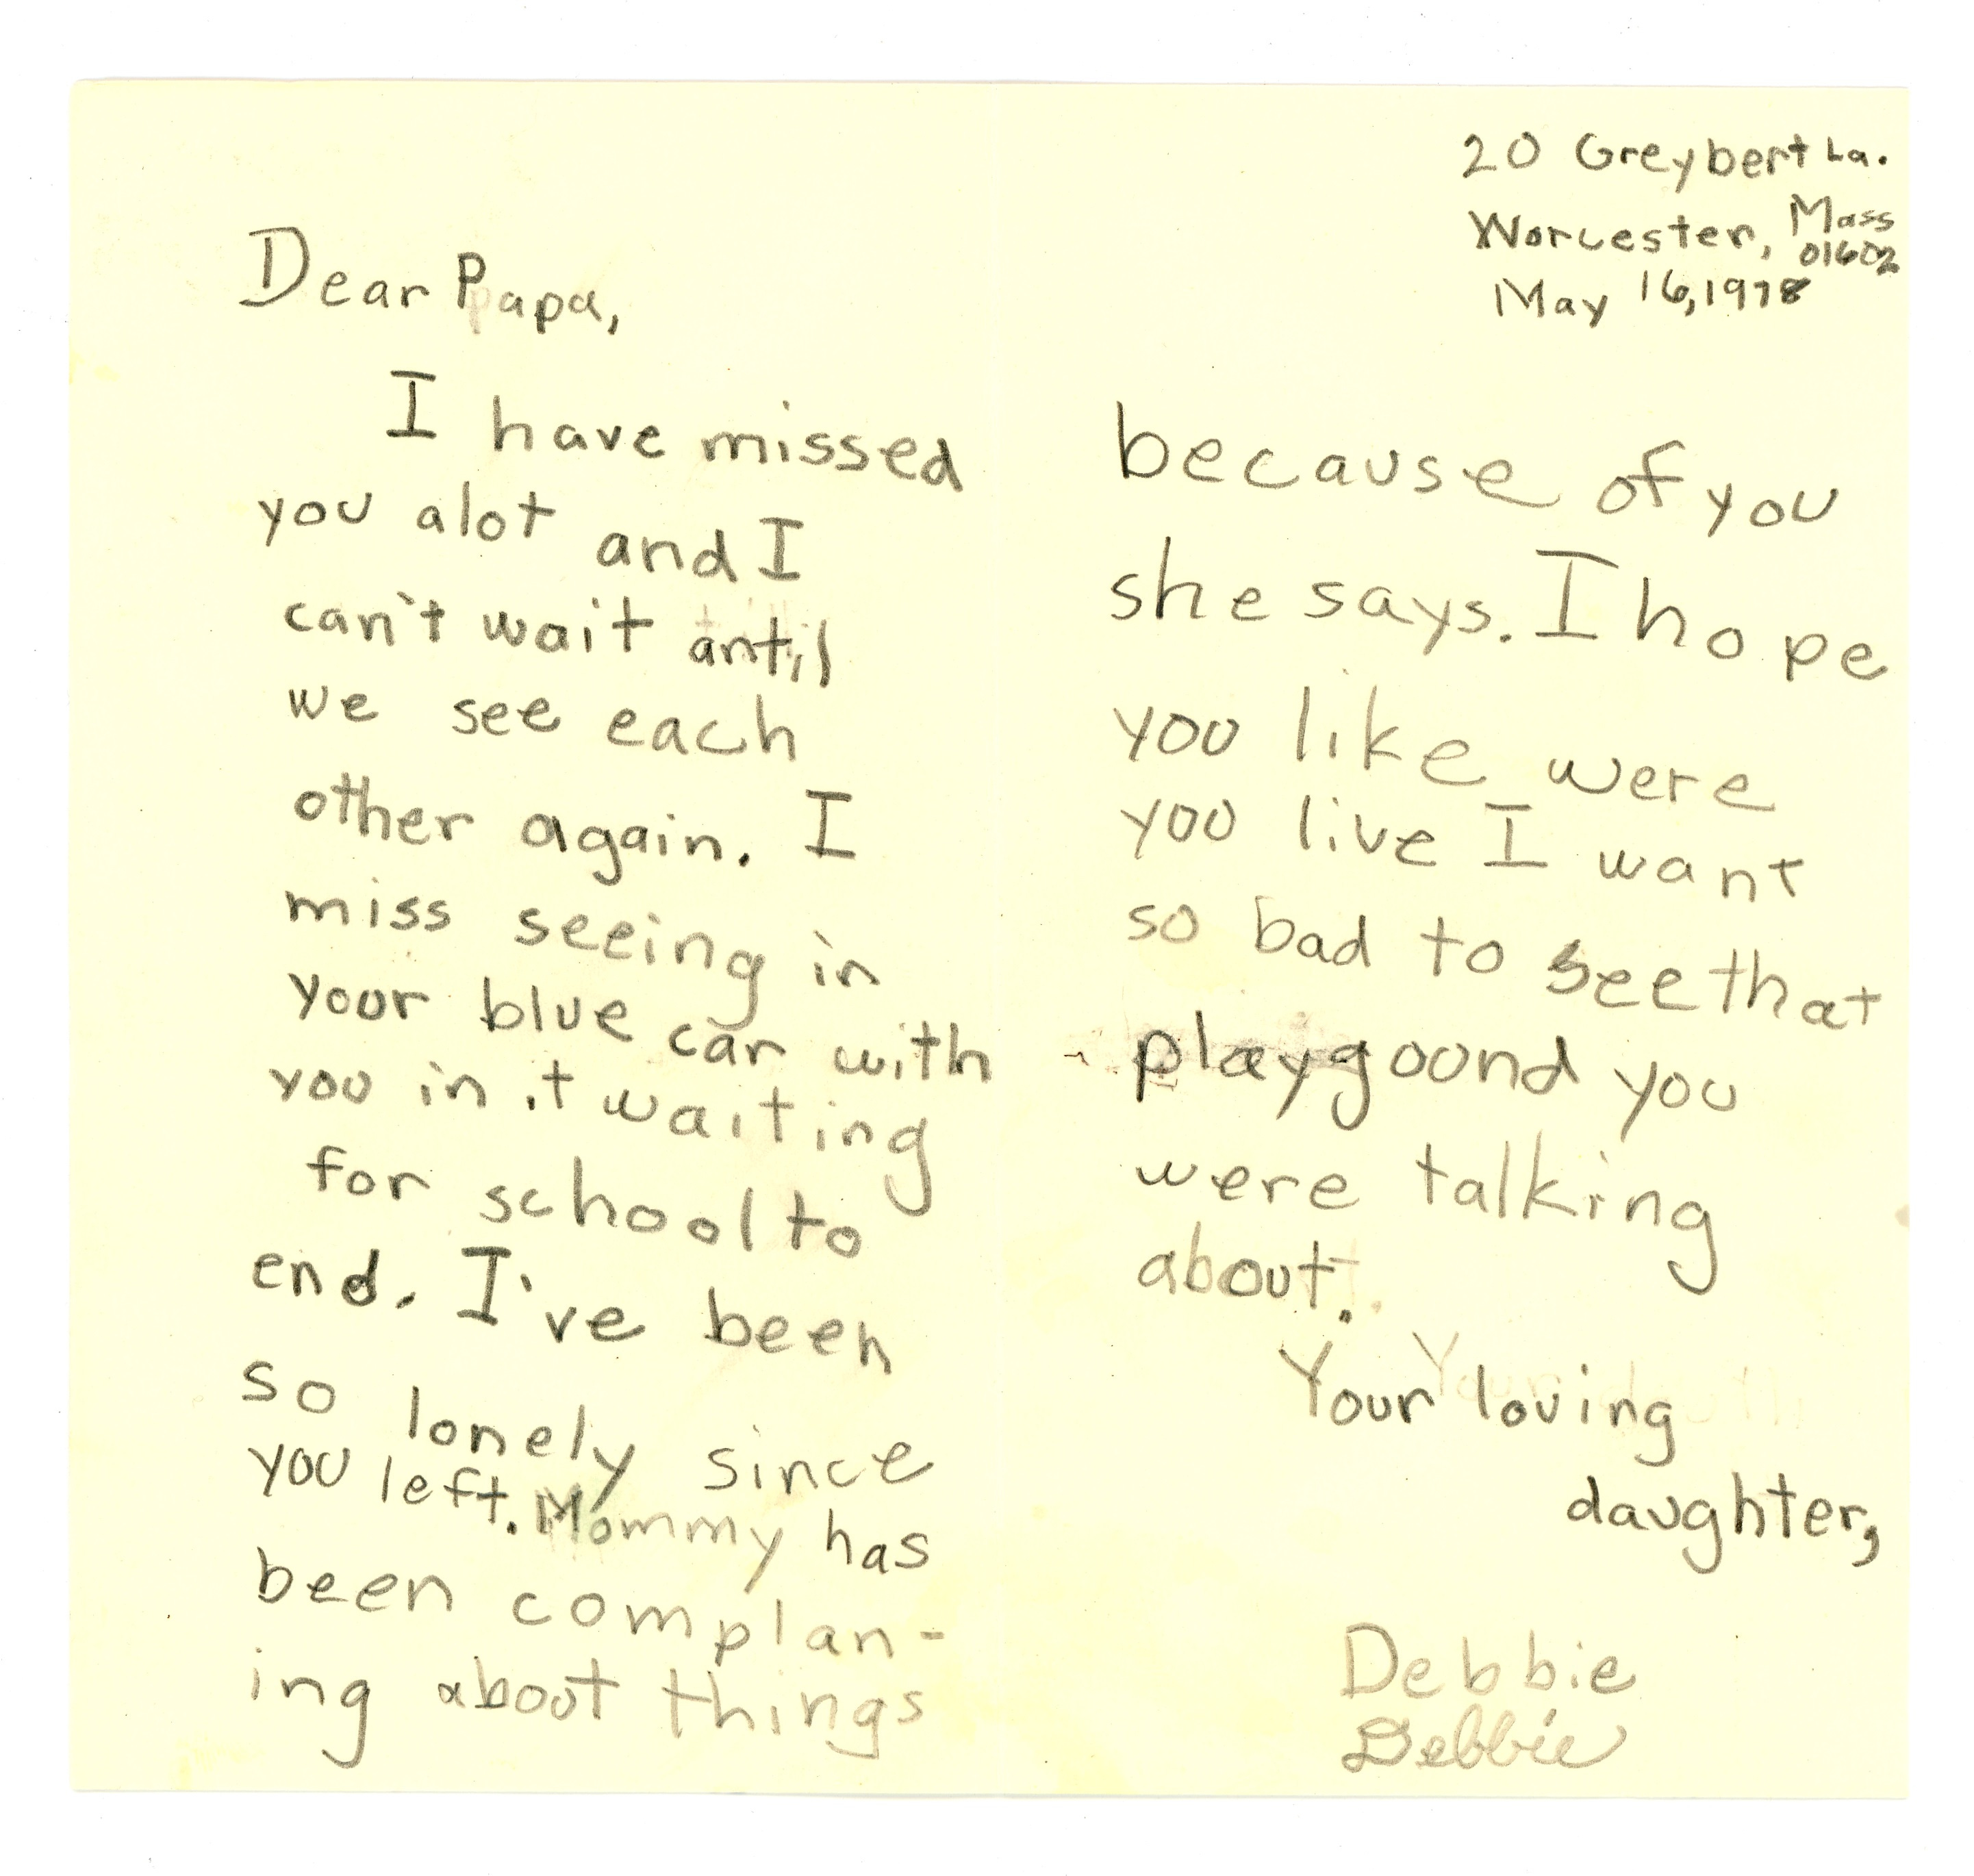 20 Greybert La.
Worcester, Mass
01602
May 16, 1978
Dear Papa,
I have missed
you alot and I
can't wait antil
we see each
other again. I
miss seeing in
your blue car with
you in it waiting
for school to
end. I've been
so lonely since
you left. Mommy has
been complan-
ing about things
because of you
she says. I hope
you like were
you live I want
so bad to see that
playgound you
were talking
about.
Your loving
daughter,
Debbie
Debbie